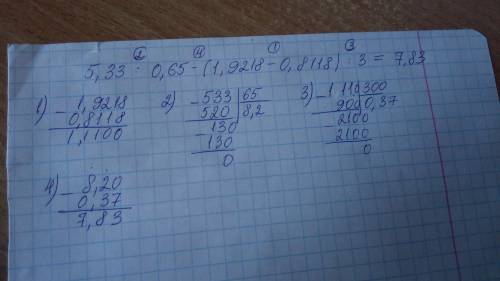 ② ④ ① ③
5,33 : 0,65 - (1,9218 - 0,8118) : 3 = 7,83
1) - 1,9218
0,8118
1,1100
2) - 533 | 65
520 | 8,2
- 130
130
0
3) - 1110 | 300
900 | 0,37
- 2100
2100
0
4) - 8,20
0,37
7,83